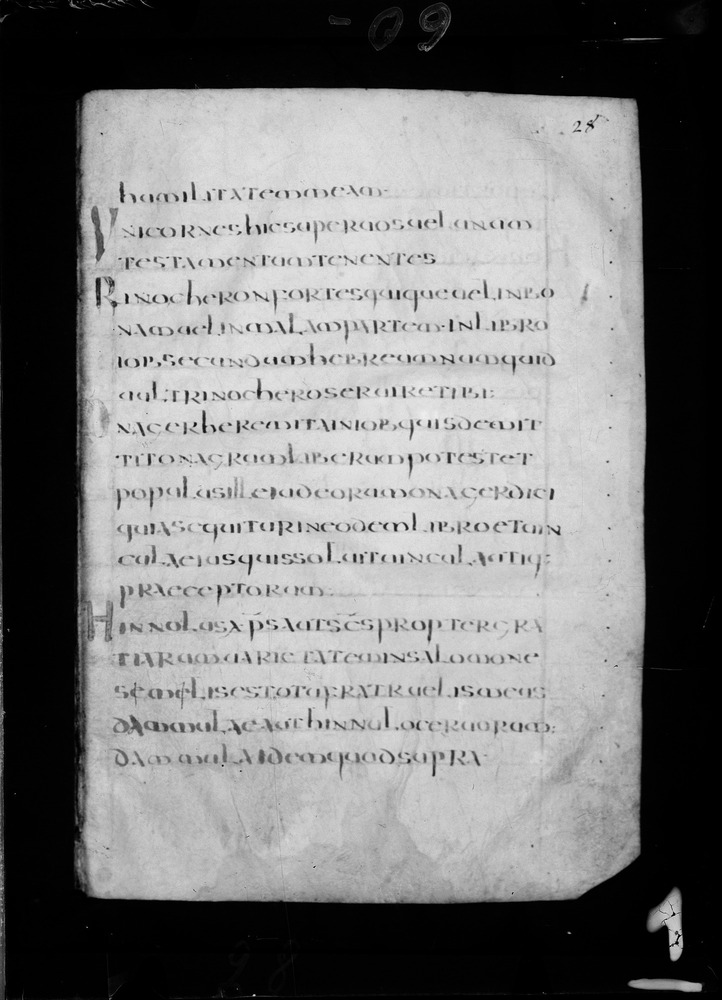 60-
28
humilitatem meam·
Unicornes hi e superuosuel unum
testamentum tenentes
Rinocheron fortes quique uel in bo
nam uel in malam partem· in libro
iob secundum hebreum numquid
uult rinocheros seruire tibi:
Onager heremita in iob quis demit
tit onagrum liberum potest et
populus ille iudeorum onager dici
quia sequitur in eodem libro et uin
cula eius quis soluit uincula utiq:
praeceptorum·
Hinnolus xps aut scs propter gra
tiarum uarietatem in salomone
semelis esto tu frater uelis meus
dammulae aut hinnulo ceruorum:
dammula idem quod supra·
1